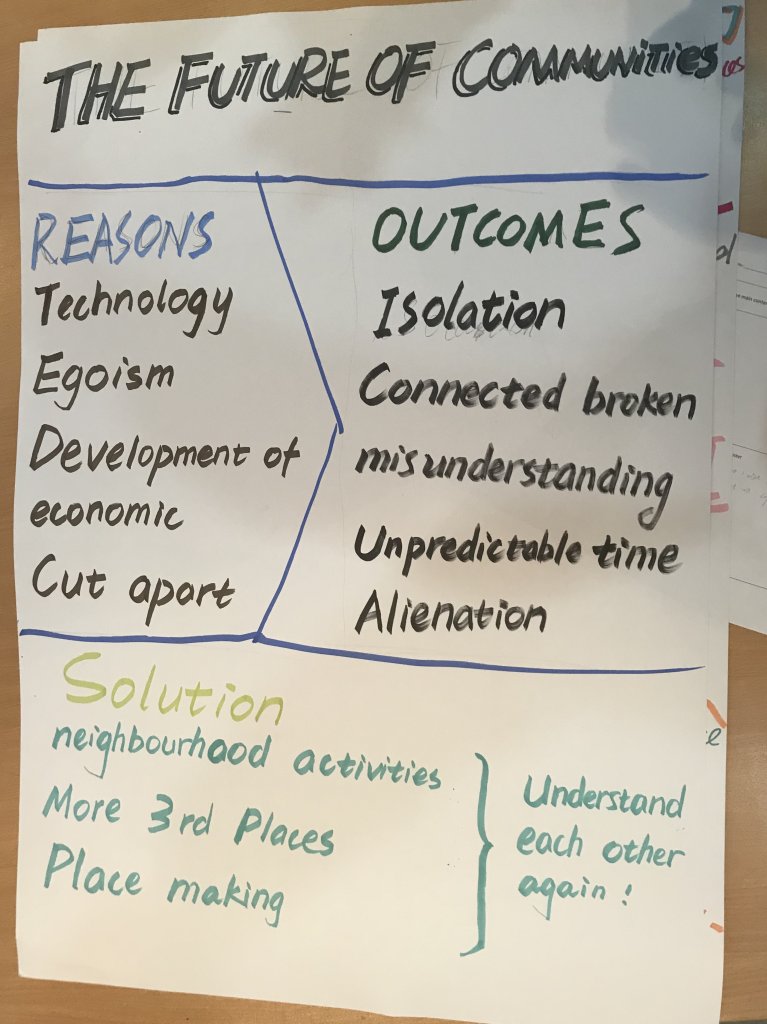 THE FUTURE OF COMMUNITIES
REASONS
Technology
Egoism
Development of
economic
Cut apart
OUTCOMES
Isolation
Connected broken
misunderstanding
Unpredictable time
Alienation
Solution
neighbourhood activities
More 3rd Places
Place making
Understand
each other
again!